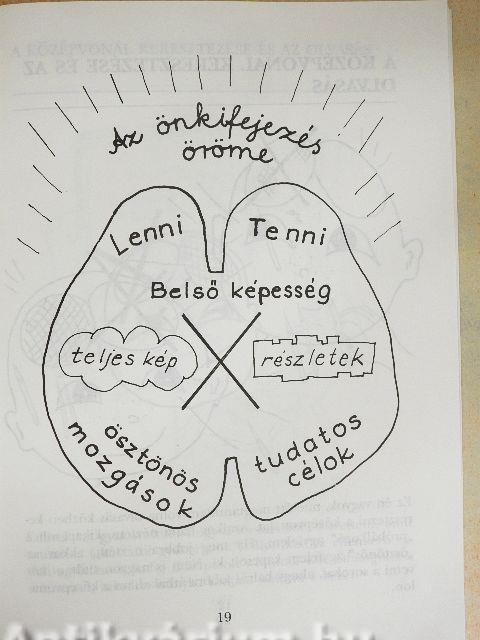 Az önkifejezés
öröme
Lenni
Tenni
Belső képesség
teljes kép
részletek
ösztönös
mozgások
tudatos
célok
19
Antikvárium.hu